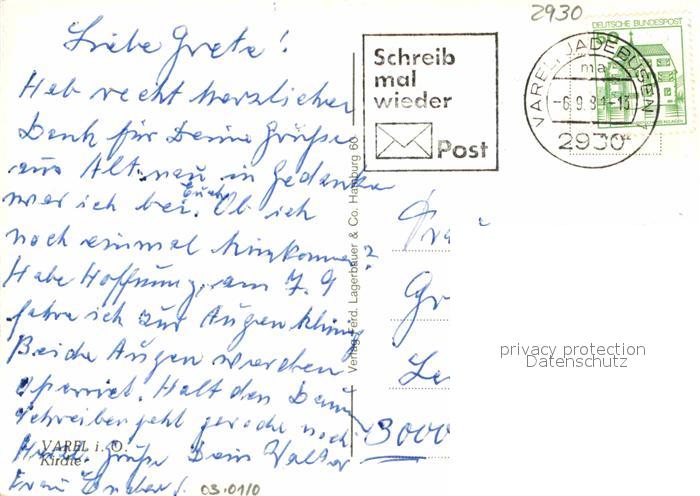 2930
Liebe Grete!
Hab recht herzlichen
Dank für Deine Grüße
aus Altenau in Gedanke
war ich bei Euch. Ob ich
noch einmal hinkomme?
Habe Hoffnung, am 7. 9
fahre ich zur Augenklinig
Beide Augen werden
operriet. Halt den Daum
Schreiben geht gerade noch.
Herzl. Grüße Dein Walter
Frau
VAREL i. O.
Kirche
03.01/0
Verlag Ferd. Lagerbauer & Co. Hamburg 60
Schreib
mal
wieder
Post
VAREL, JADEBUSEN 1
ma
-6.9.84-13
2930
DEUTSCHE BUNDESPOST
50
Fra
Gr
Le
3000
privacy protection
Datenschutz